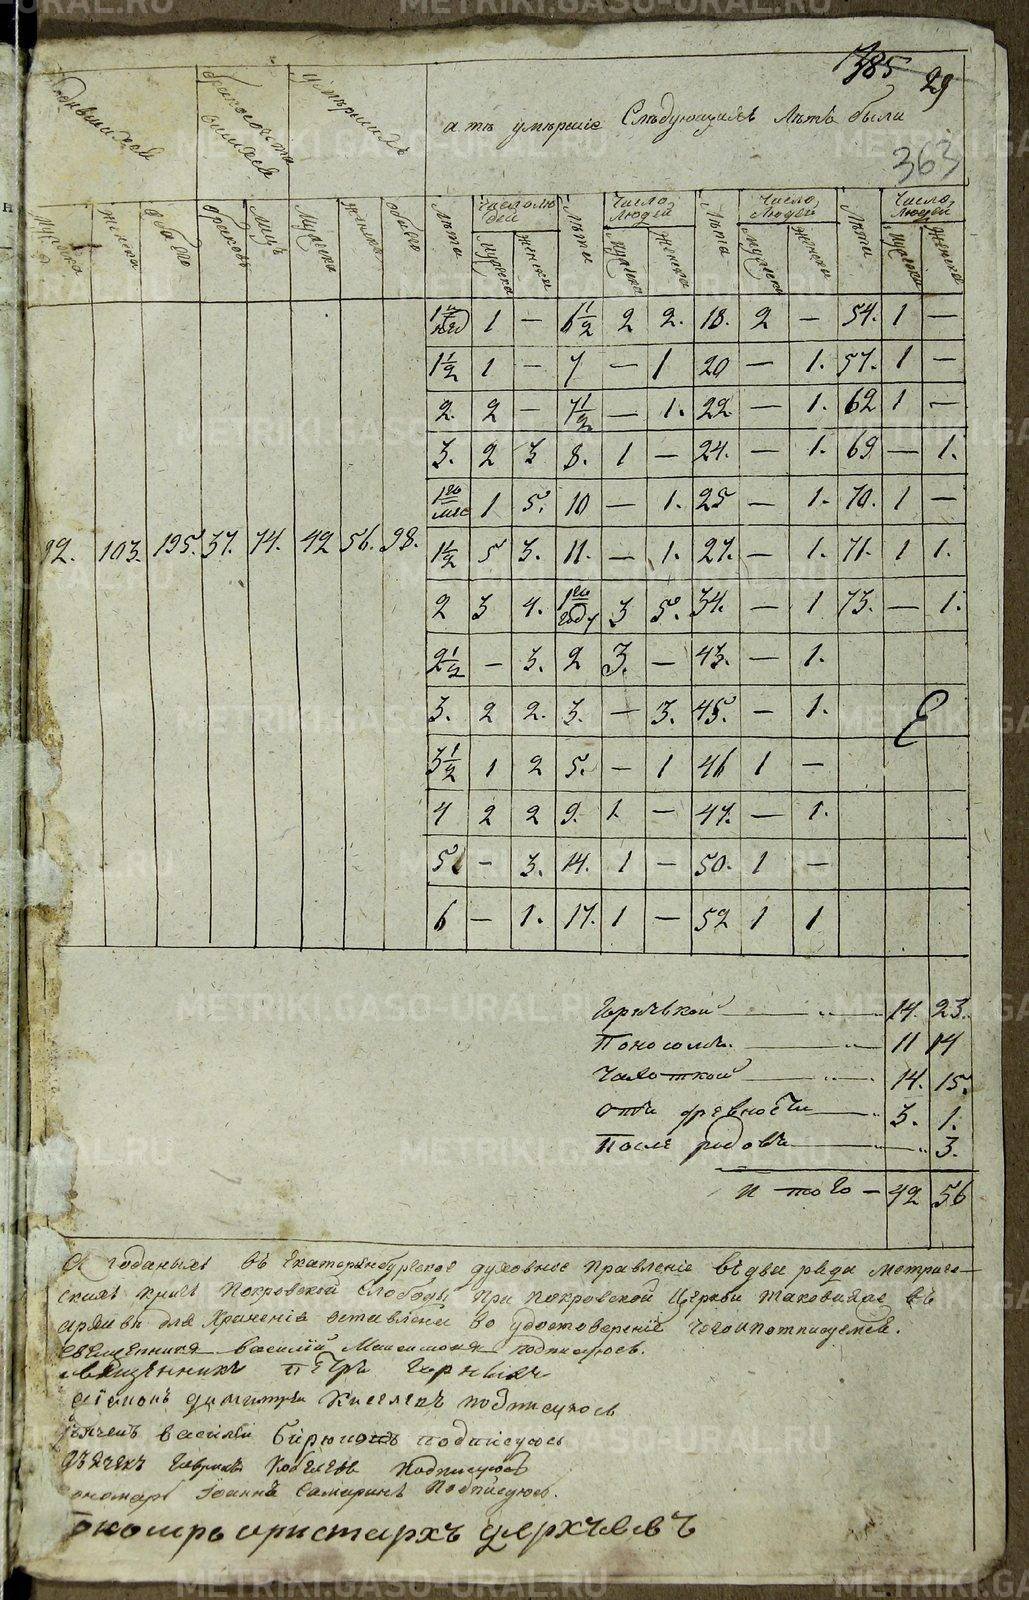 385 29
363
родившихся
умершихъ
а тѣ умершіе Слѣдующихъ Лѣтъ были
Мужска Женска обаего браковъ Лицъ Мужска женска обаего
Лѣта Число людей Мужеска женска Лѣта Число Людей мужеска женска Лѣта Число Людей мужеска женска Лѣта Число Людей мужска женска
1 нед 1 — 6½ 2 2. 18. 2 — 54. 1 —
1½ 1 — 7 — 1 20 — 1. 57. 1 —
2. 2 — 7½ — 1. 22 — 1. 62 1 —
3. 2 3 8. 1 — 24. — 1. 69 — 1.
1го мес 1 5. 10 — 1. 25 — 1. 70. 1 —
92. 103. 195. 37. 74. 42 56. 98.
1½ 5 3. 11. — 1. 27. — 1. 71. 1 1.
2 3 4. 1го году 3 5. 34. — 1 73. — 1.
2½ — 3. 2 3. — 43. — 1.
3. 2 2. 3. — 3. 45. — 1.
3½ 1 2 5. — 1 46 1 —
4 2 2 9. 1. — 47. — 1.
5 — 3. 14. 1 — 50. 1 —
6 — 1. 17. 1 — 52 1 1
Горячькой 14. 23.
Поносомъ 11 14
Чахоткой 14. 15.
Отъ древности 3. 1.
После родовъ 3.
Итого — 42 56
въ Екатеринбургское духовное Правленіе въ два ряда метриче-
скихъ книгъ Покровской Слободы при Покровской Церкви таковыяже въ
архивѣ для Храненія оставлены во удостовереніе чего и потписуемся.
Священникъ василій подписуюсь.
Священникъ пéтръ Горныхъ
діаконъ димитрій Киселевъ подписуюсь
дьячекъ василей Бирюковъ подписуюсь
дьячекъ Гаврилъ Кобелевъ подписуюсь
пономарь Іоаннъ Самаринъ Подписуюсь.
пономрь аристархъ дерхѣевъ
METRIKI.GASO-URAL.RU